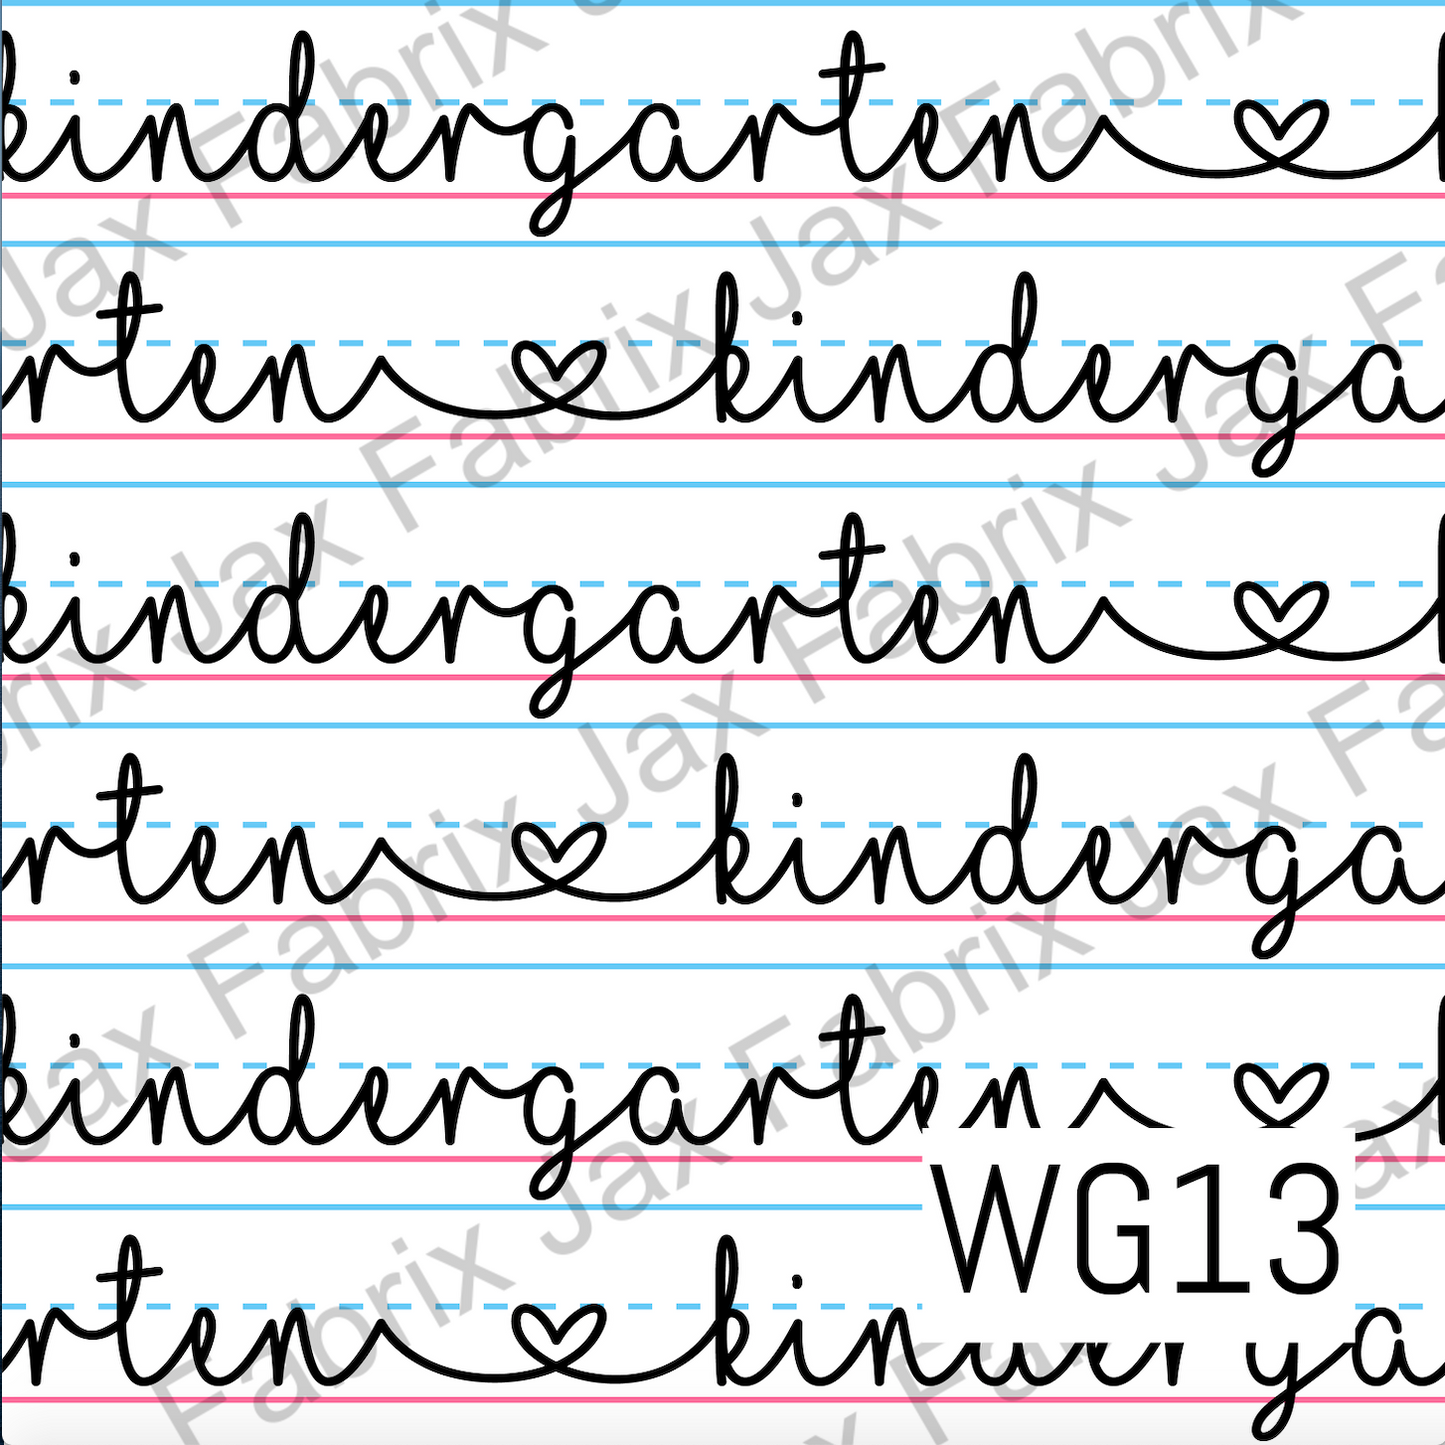 kindergarten
rten kinderga
kindergarten
rten kinderga
kindergarten
WG13
rten kinderga
Jax Fabrix Jax Fabrix Jax Fabrix